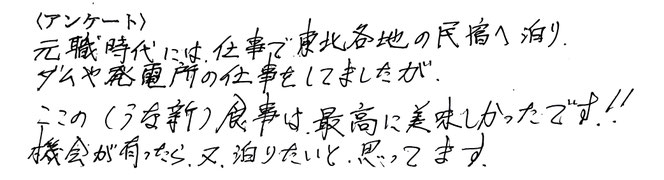 〈アンケート〉
元職時代には、仕事で東北各地の民宿へ泊り、
ダムや発電所の仕事をしてましたが、
ここの(うな新)食事は、最高に美味しかったです!!
機会が有ったら、又、泊りたいと、思ってます。